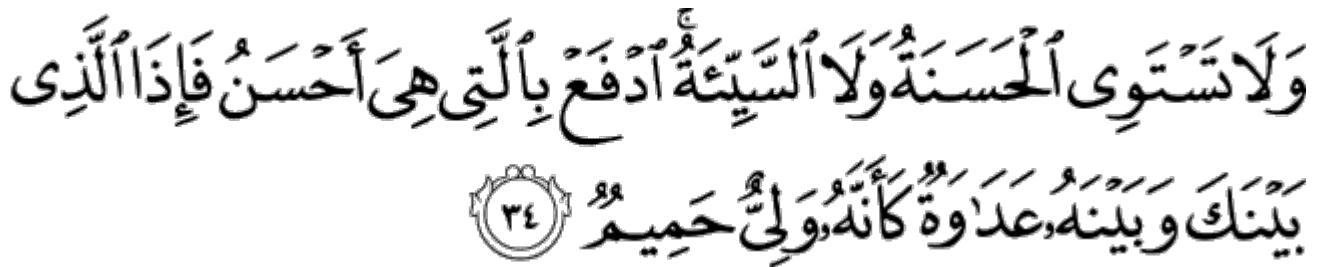 وَلَا تَسْتَوِى ٱلْحَسَنَةُ وَلَا ٱلسَّيِّئَةُ ۚ ٱدْفَعْ بِٱلَّتِى هِىَ أَحْسَنُ فَإِذَا ٱلَّذِى
بَيْنَكَ وَبَيْنَهُۥ عَدَٰوَةٌ كَأَنَّهُۥ وَلِىٌّ حَمِيمٌ ٣٤